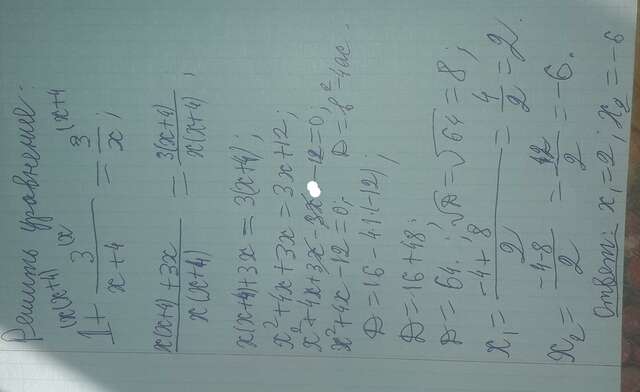 Решить уравнение:
1 + 3/(x+4) = 3/x;
(x(x+4) + 3x)/(x(x+4)) = 3(x+4)/(x(x+4));
x(x+4)+3x = 3(x+4);
x²+4x+3x = 3x+12;
x²+4x+3x-3x-12=0;
x²+4x-12=0; D=b²-4ac.
D=16-4·(-12);
D=16+48;
D=64; √D=√64=8;
x₁ = (-4+8)/2 = 4/2 = 2.
x₂ = (-4-8)/2 = -12/2 = -6.
Ответ: x₁=2; x₂=-6